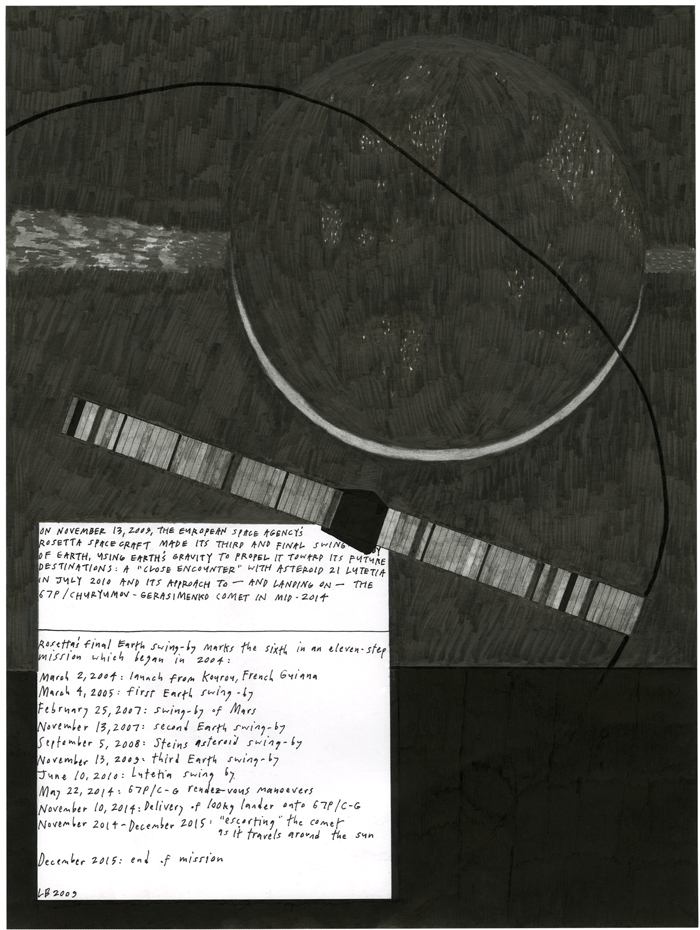 ON NOVEMBER 13, 2009, THE EUROPEAN SPACE AGENCY'S
ROSETTA SPACECRAFT MADE ITS THIRD AND FINAL SWING
OF EARTH, USING EARTH'S GRAVITY TO PROPEL IT TOWARD ITS FUTURE
DESTINATIONS: A "CLOSE ENCOUNTER" WITH ASTEROID 21 LUTETIA
IN JULY 2010 AND ITS APPROACH TO — AND LANDING ON — THE
67P/CHURYUMOV-GERASIMENKO COMET IN MID-2014
Rosetta's final Earth swing-by marks the sixth in an eleven-step
mission which began in 2004:
March 2, 2004: launch from Kourou, French Guiana
March 4, 2005: first Earth swing-by
February 25, 2007: swing-by of Mars
November 13, 2007: second Earth swing-by
September 5, 2008: Steins asteroid swing-by
November 13, 2009: third Earth swing-by
June 10, 2010: Lutetia swing by
May 22, 2014: 67P/C-G rendez-vous manoevers
November 10, 2014: Delivery of 100kg lander onto 67P/C-G
November 2014-December 2015: "escorting" the comet
as it travels around the sun
December 2015: end of mission
LB 2009